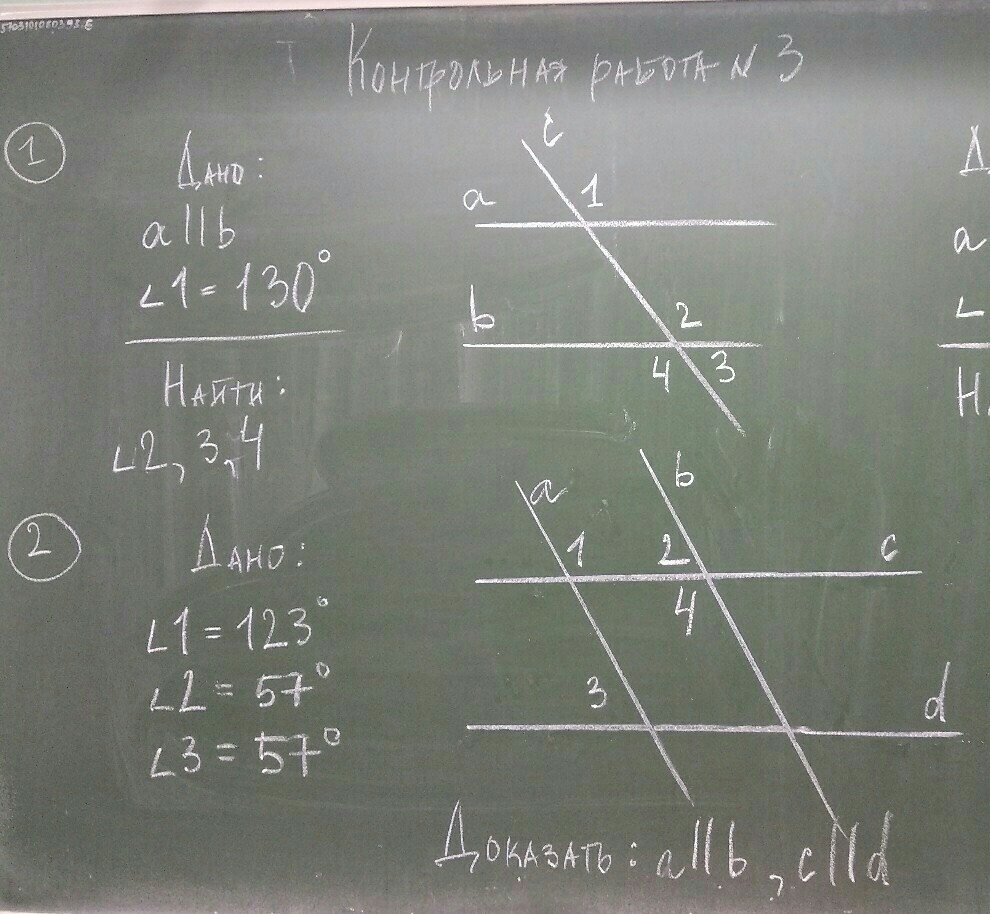 5703101080393.6
Контрольная работа N 3
1
Дано:
a||b
∠1=130°
Найти:
∠2, 3, 4
c
a
1
b
2
4 3
2
Дано:
∠1=123°
∠2=57°
∠3=57°
a
b
1
2
c
4
3
d
Доказать: a||b, c||d
Д
a
∠
Н